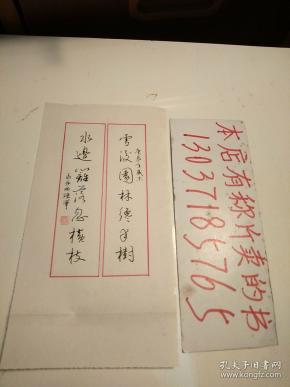 雪後園林纔半樹
水邊籬落忽橫枝
本店有称斤卖的书
13037185765
孔夫子旧书网